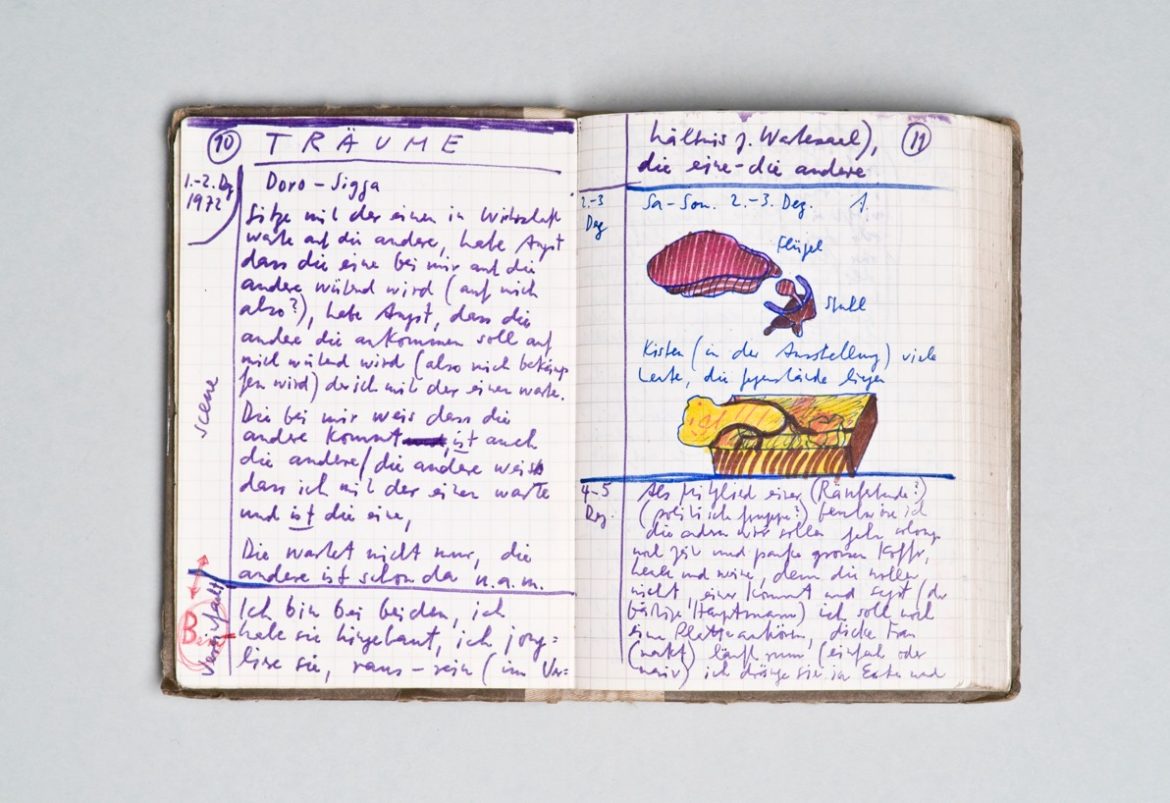 10
TRÄUME
1.-2. Dez
1972
Doro - Sigga
Sitze mit der einen in Wirtschaft
warte auf die andere, habe Angst
dass die eine bei mir auf die
andere wütend wird (auf mich
also?), habe Angst, dass die
andere die ankommen soll auf
mich wütend wird (also mich bekämp
fen wird) der ich mit der einen warte.
scene
Die bei mir weis dass die
andere kommt, ist auch
die andere / die andere weis
dass ich mit der einen warte
und ist die eine,
Die wartet nicht nur, die
andere ist schon da u.a.m.
vereinfacht
Ich bin bei beiden, ich
habe sie hingebaut, ich jong-
liere sie, raus - rein (im Ver=
hältnis z. Wartesael),
11
die eine - die andere
2.-3
Dez
Sa-Son. 2.-3. Dez. 1.
Flügel
Stuhl
Kisten (in der Ausstellung) viele
Leute, die Gegenstände liegen
4-5
Dez.
Als Mitglied einer (Räuberbande?)
(politische Gruppe?) ich
die andren wir sollen
und und packe grossen Koffer,
heule und weine, denn die wollen
nicht, einer kommt und sagt (der
Hauptmann) ich soll noch
eine Platte anhören, dicke Frau
(nakt) läuft rum (einfach oder
naiv) ich dränge sie in und